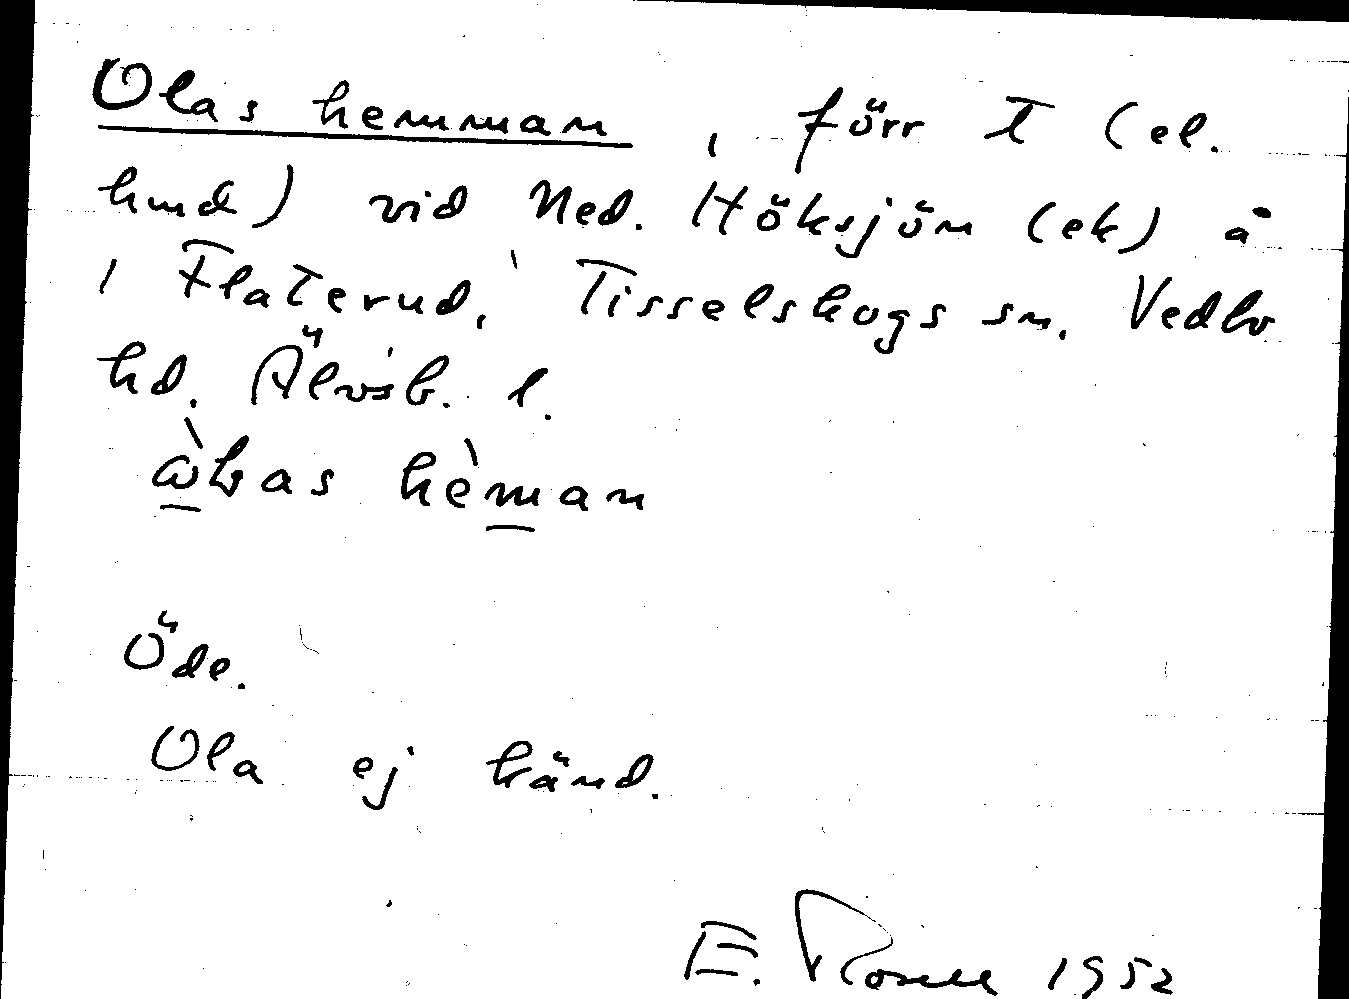 Olas hemman, förr T (el.
hmd) vid Ned. Höksjön (ek) å
i Flaterud, Tisselskogs sn. Vedbo
hd. Älvsb. l.
hèman
Öde.
Ola ej känd.
E. Rosell 1952